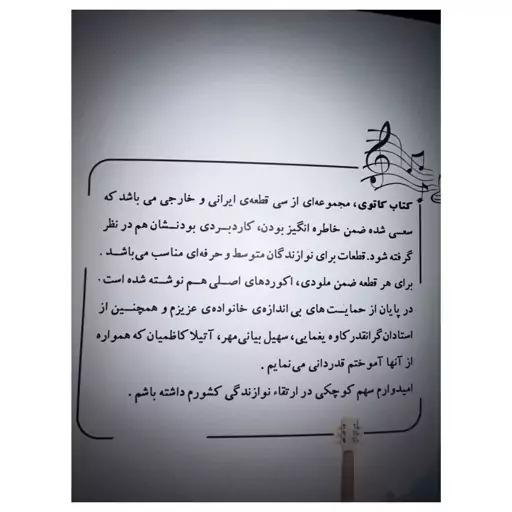 کتاب کاتوی، مجموعه‌ای از سی قطعه‌ی ایرانی و خارجی می باشد که
سعی شده ضمن خاطره انگیز بودن، کاربردی بودنشان هم در نظر
گرفته شود. قطعات برای نوازندگان متوسط و حرفه‌ای مناسب می‌باشد .
برای هر قطعه ضمن ملودی، اکوردهای اصلی هم نوشته شده است .
در پایان از حمایت های بی اندازه‌ی خانواده‌ی عزیزم و همچنین از
استادان گرانقدر کاوه یغمایی، سهیل بیانی‌مهر، آتیلا کاظمیان که همواره
از آنها آموختم قدردانی می‌نمایم .
امیدوارم سهم کوچکی در ارتقاء نوازندگی کشورم داشته باشم .